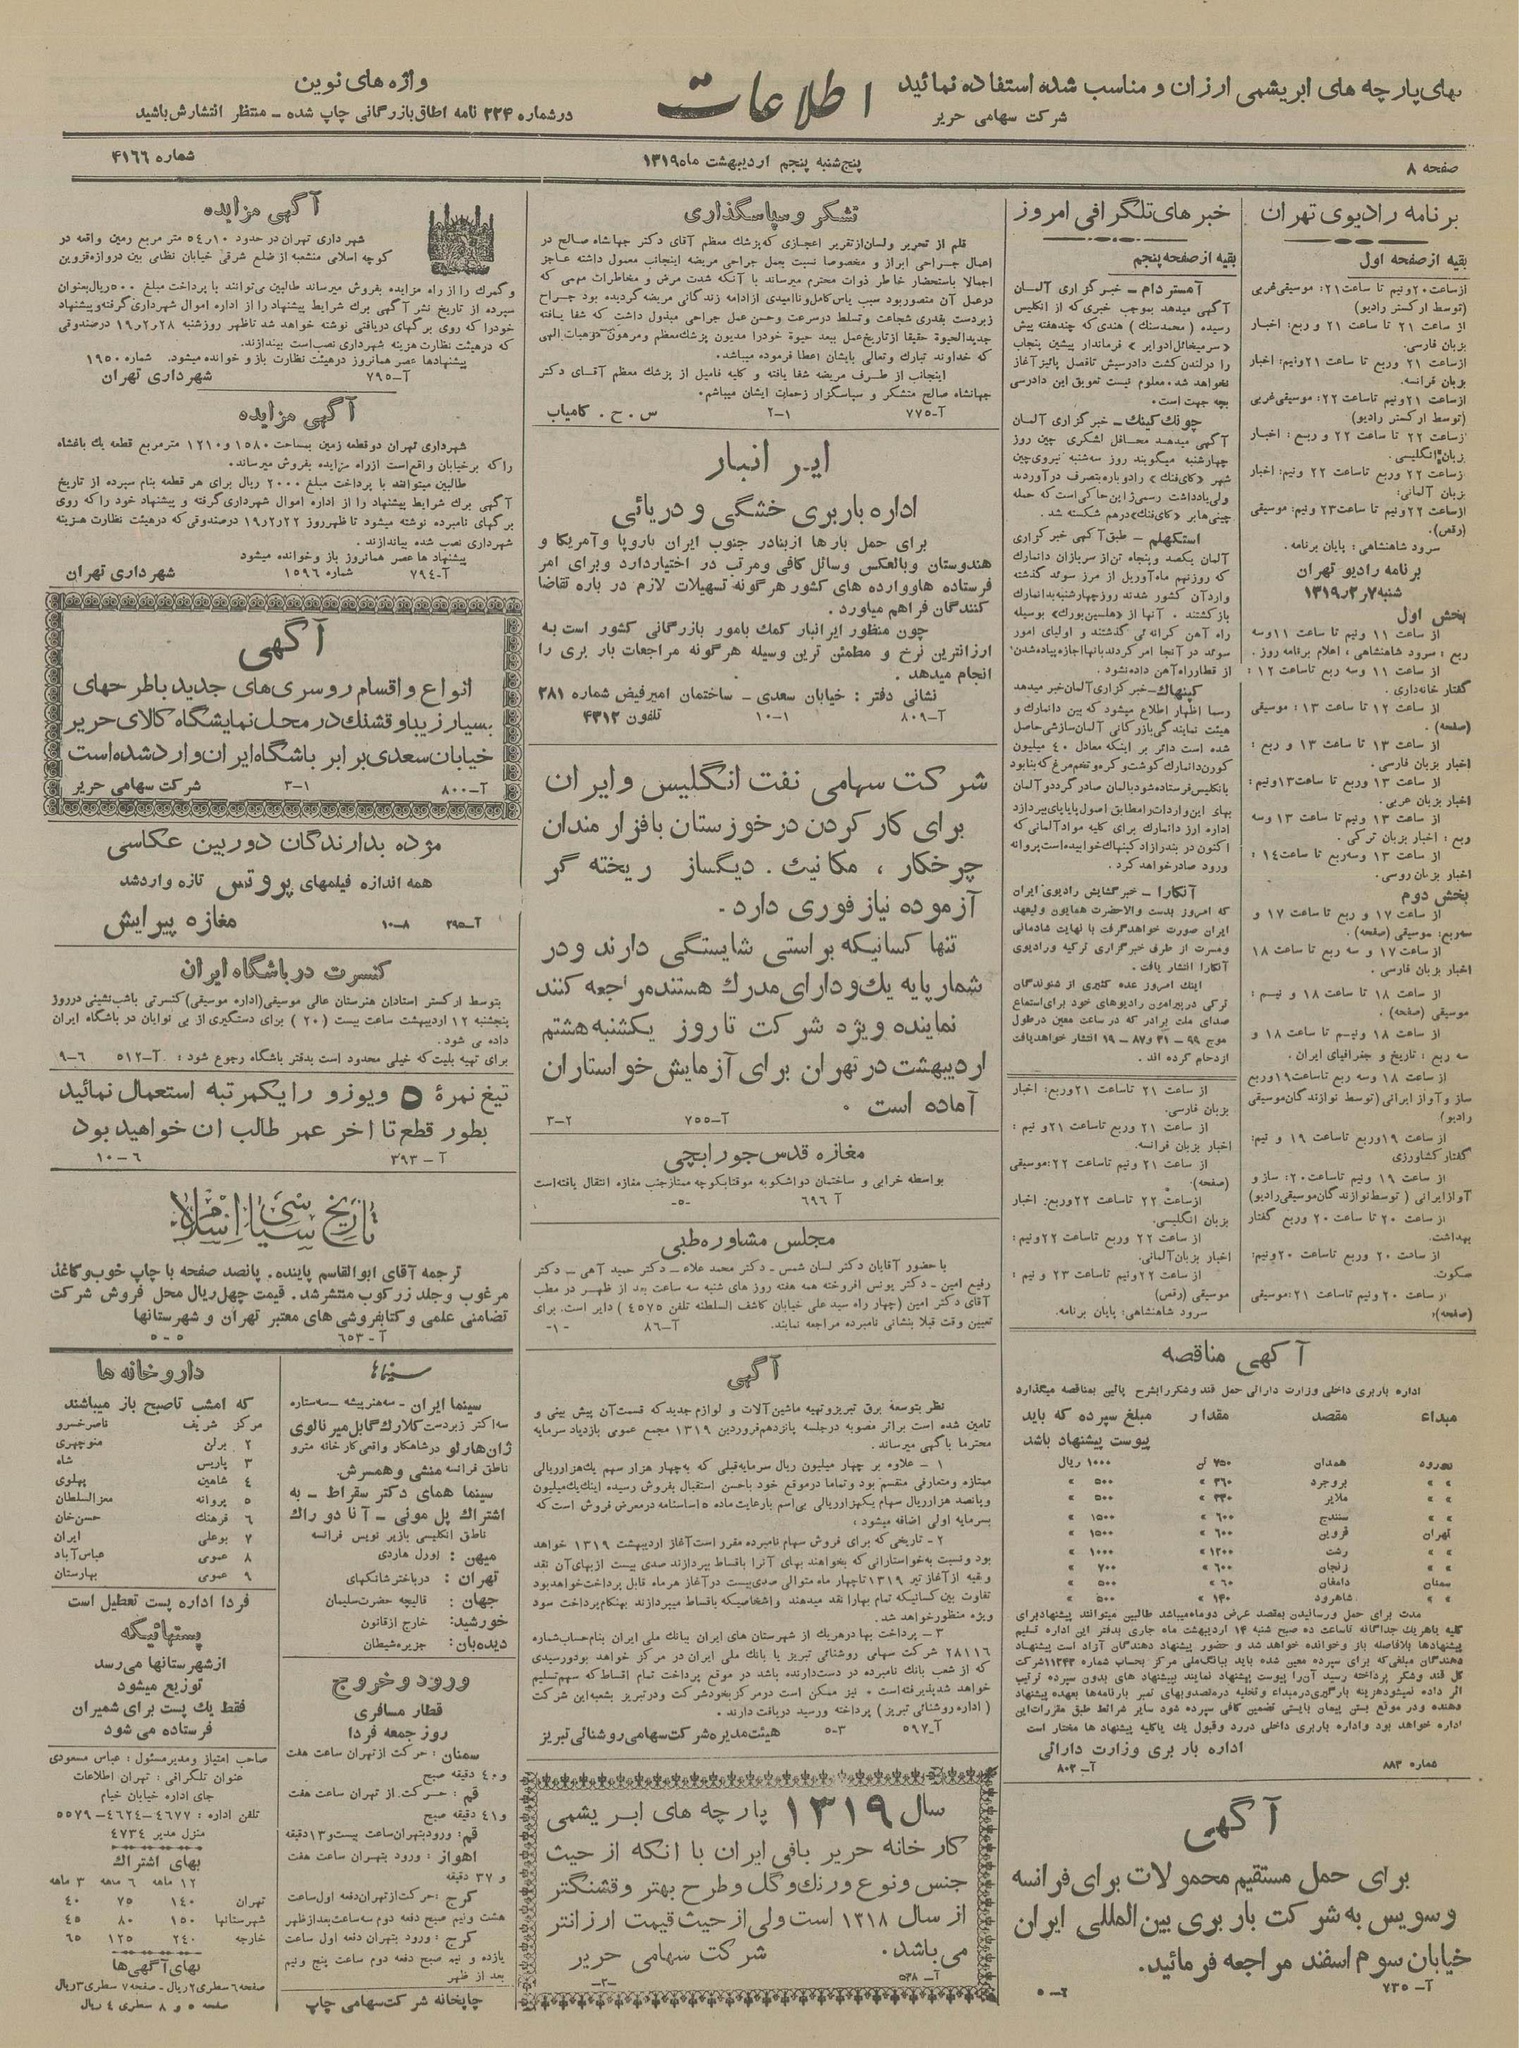 بهای پارچه های ابریشمی ارزان و مناسب شده استفاده نمائید
شرکت سهامی حریر
اطلاعات
واژه های نوین
در شماره ۲۲۴ نامه اطاق بازرگانی چاپ شده – منتظر انتشارش باشید
صفحه ۸
پنج شنبه پنجم اردیبهشت ماه ۱۳۱۹
شماره ۴۱۶۶
برنامه رادیوی تهران
بقیه از صفحه اول
از ساعت ۲۰ ونیم تا ساعت ۲۱: موسیقی غربی
(توسط ارکستر رادیو)
از ساعت ۲۱ تا ساعت ۲۱ و ربع: اخبار
بزبان فارسی.
از ساعت ۲۱ وربع تا ساعت ۲۱ ونیم: اخبار
بزبان فرانسه.
از ساعت ۲۱ ونیم تا ساعت ۲۲: موسیقی غربی
(توسط ارکستر رادیو)
از ساعت ۲۲ تا ساعت ۲۲ و ربع: اخبار
بزبان انگلیسی.
از ساعت ۲۲ وربع تا ساعت ۲۲ ونیم: اخبار
بزبان آلمانی:
از ساعت ۲۲ ونیم تا ساعت ۲۳ ونیم: موسیقی
(رقص).
سرود شاهنشاهی: پایان برنامه.
برنامه رادیو تهران
شنبه ۷ر۲ر۱۳۱۹
بخش اول
از ساعت ۱۱ ونیم تا ساعت ۱۱ وسه
ربع: سرود شاهنشاهی، اعلام برنامه روز.
از ساعت ۱۱ وسه ربع تا ساعت ۱۲:
گفتار خانه داری.
از ساعت ۱۲ تا ساعت ۱۳: موسیقی
(صفحه).
از ساعت ۱۳ تا ساعت ۱۳ و ربع:
اخبار بزبان فارسی.
از ساعت ۱۳ وربع تا ساعت ۱۳ ونیم:
اخبار بزبان عربی.
از ساعت ۱۳ ونیم تا ساعت ۱۳ وسه
ربع: اخبار بزبان ترکی.
از ساعت ۱۳ وسه ربع تا ساعت ۱۴:
اخبار بزبان روسی.
بخش دوم
از ساعت ۱۷ و ربع تا ساعت ۱۷ و
سه ربع: موسیقی (صفحه).
از ساعت ۱۷ و سه ربع تا ساعت ۱۸
اخبار بزبان فارسی.
از ساعت ۱۸ تا ساعت ۱۸ و نیم:
موسیقی (صفحه).
از ساعت ۱۸ ونیم تا ساعت ۱۸ و
سه ربع: تاریخ و جغرافیای ایران.
از ساعت ۱۸ وسه ربع تا ساعت ۱۹ وربع
ساز و آواز ایرانی (توسط نوازندگان موسیقی
رادیو)
از ساعت ۱۹ وربع تا ساعت ۱۹ و نیم:
گفتار کشاورزی
از ساعت ۱۹ ونیم تا ساعت ۲۰: ساز و
آواز ایرانی (توسط نوازندگان موسیقی رادیو)
از ساعت ۲۰ تا ساعت ۲۰ وربع گفتار
بهداشت.
از ساعت ۲۰ وربع تا ساعت ۲۰ ونیم:
سکوت.
از ساعت ۲۰ ونیم تا ساعت ۲۱: موسیقی
(صفحه):
خبرهای تلگرافی امروز
بقیه از صفحه پنجم
آمستردام – خبرگزاری آلمان
آگهی میدهد بموجب خبری که از انگلیس
رسیده (محمد سنک) هندی که چند هفته پیش
«سرمیخائل ادوایر» فرماندار پیشین پنجاب
را در لندن کشت دادرسیش تا فصل پائیز آغاز
نخواهد شد. معلوم نیست تعویق این دادرسی
بچه جهت است.
چونک کینک – خبرگزاری آلمان
آگهی میدهد محافل لشکری چین روز
چهارشنبه میگویند روز سه شنبه نیروی چین
شهر «کای فنک» را دوباره بتصرف درآوردند
ولی یادداشت رسمی ژاپن حاکی است که حمله
چینی ها بر «کای فنک» درهم شکسته شد.
استکهلم – طبق آگهی خبرگزاری
آلمان یکصد و پنجاه تن از سربازان دانمارک
که روز نهم ماه آوریل از مرز سوئد گذشته
وارد آن کشور شدند روز چهارشنبه بدانمارک
بازگشتند. آنها از «هلسین بورک» بوسیله
راه آهن کرانه ئی گذشتند و اولیای امور
سوئد در آنجا امر کردند بآنها اجازه پیاده شدن
از قطار راه آهن داده نشود.
کپنهاک – خبرگزاری آلمان خبر میدهد
رسما اظهار اطلاع میشود که بین دانمارک و
هیئت نمایندگی بازرگانی آلمان سازشی حاصل
شده است دائر بر اینکه معادل ۴۰ میلیون
کورن دانمارک گوشت و کره و تخم مرغ که بنا بود
بانگلیس فرستاده شود بآلمان صادر گردد و آلمان
بهای این واردات را مطابق اصول پایاپای بپردازد
اداره ارز دانمارک برای کلیه مواد آلمانی که
اکنون در بندر آزاد کپنهاک خوابیده است پروانه
ورود صادر خواهد کرد.
آنکارا – خبر گشایش رادیوی ایران
که امروز بدست والاحضرت همایون ولیعهد
ایران صورت خواهد گرفت با نهایت شادمانی
ومسرت از طرف خبرگزاری ترکیه و رادیوی
آنکارا انتشار یافت.
اینک امروز عده کثیری از شنوندگان
ترکی در پیرامون رادیوهای خود برای استماع
صدای ملت برادر که در ساعت معین در طول
موج ۹۹ – ۳۱ و ۸۷ – ۱۹ انتشار خواهد یافت
ازدحام کرده اند.
از ساعت ۲۱ تا ساعت ۲۱ وربع: اخبار
بزبان فارسی.
از ساعت ۲۱ وربع تا ساعت ۲۱ و نیم:
اخبار بزبان فرانسه.
از ساعت ۲۱ ونیم تا ساعت ۲۲: موسیقی
(صفحه).
از ساعت ۲۲ تا ساعت ۲۲ وربع: اخبار
بزبان انگلیسی.
از ساعت ۲۲ وربع تا ساعت ۲۲ ونیم:
اخبار بزبان آلمانی.
از ساعت ۲۲ ونیم تا ساعت ۲۳ و نیم:
موسیقی (رقص)
سرود شاهنشاهی: پایان برنامه.
آگهی مناقصه
اداره باربری داخلی وزارت دارائی حمل قند و شکر را بشرح پائین بمناقصه میگذارد
مبداء مقصد مقدار مبلغ سپرده که باید
پیوست پیشنهاد باشد
همدان ۷۵۰ تن ۱۰۰۰ ریال
» » بروجرد ۳۶۰ » ۵۰۰ »
» » ملایر ۳۳۰ » ۵۰۰ »
» » سنندج ۶۰۰ » ۱۵۰۰ »
تهران قزوین ۶۰۰ » ۱۵۰۰ »
» » رشت ۱۲۰۰ » ۱۰۰۰ »
» » زنجان ۶۰۰ » ۷۰۰ »
سمنان دامغان ۶۰ » ۵۰۰ »
شاهرود ۱۴۰ » ۵۰۰ »
مدت برای حمل و رسانیدن بمقصد عرض دو ماه میباشد طالبین میتوانند پیشنهاد برای
کلیه یا هریک جداگانه تا ساعت ده صبح شنبه ۱۴ اردیبهشت ماه جاری بدفتر این اداره تسلیم
پیشنهادها بلافاصله باز و خوانده خواهد شد و حضور پیشنهاد دهندگان آزاد است پیشنهاد
دهندگان مبلغی که برای سپرده معین شده باید ببانک ملی مرکز بحساب شماره ۱۱۲۴۳ شرکت
کل قند و شکر پرداخته رسید آن را پیوست پیشنهاد نمایند پیشنهاد های بدون سپرده ترتیب
اثر داده نمیشود هزینه بارگیری در مبداء و تخلیه در مقصد و بهای تمبر بارنامه ها بعهده پیشنهاد
دهنده و در موقع بستن پیمان بایستی تضمین کافی سپرده شود سایر شرائط طبق مقررات این
اداره خواهد بود و اداره باربری داخلی در رد و قبول یک یا کلیه پیشنهاد ها مختار است
اداره باربری وزارت دارائی
شماره ۸۸۳ آ– ۸۰۲
آگهی
برای حمل مستقیم محمولات برای فرانسه
و سویس به شرکت باربری بین المللی ایران
خیابان سوم اسفند مراجعه فرمائید.
آ– ۷۳۵
تشکر و سپاسگذاری
قلم از تحریر و لسان از تقریر اعجازی که پزشک معظم آقای دکتر جهانشاه صالح در
اعمال جراحی ابراز و مخصوصا نسبت بعمل جراحی مریضه اینجانب معمول داشته عاجز
اجمالا باستحضار خاطر ذوات محترم میرساند با آنکه شدت مرض و مخاطرات مهمی که
در عمل آن متصور بود سبب یاس کامل و ناامیدی از ادامه زندگانی مریضه گردیده بود جراح
زبردست بقدری شجاعت و تسلط در سرعت و حسن عمل جراحی مبذول داشت که شفا یافته
جدیدالحیوة حقیقا از تاریخ عمل ببعد حیوة خود را مدیون پزشک معظم و مرهون موهبات الهی
که خداوند تبارک و تعالی بایشان اعطا فرموده میباشد.
اینجانب از طرف مریضه شفا یافته و کلیه فامیل از پزشک معظم آقای دکتر
جهانشاه صالح متشکر و سپاسگزار زحمات ایشان میباشم.
آ–۷۷۵ ۲–۱ س . ح . کامیاب
ایر انبار
اداره باربری خشگی و دریائی
برای حمل بارها از بنادر جنوب ایران باروپا و آمریکا و
هندوستان و بالعکس وسائل کافی و مرتب در اختیار دارد و برای امر
فرستاده ها و وارده های کشور هرگونه تسهیلات لازم در باره تقاضا
کنندگان فراهم میاورد.
چون منظور ایرانبار کمک بامور بازرگانی کشور است به
ارزانترین نرخ و مطمئن ترین وسیله هرگونه مراجعات باربری را
انجام میدهد.
نشانی دفتر: خیابان سعدی – ساختمان امیر فیض شماره ۲۸۱
آ–۸۰۹ ۱۰–۱ تلفون ۴۳۱۲
شرکت سهامی نفت انگلیس و ایران
برای کار کردن در خوزستان بافزارمندان
چرخکار، مکانیک. دیگساز ریخته گر
آزموده نیاز فوری دارد.
تنها کسانیکه براستی شایستگی دارند و در
شمار پایه یک و دارای مدرک هستند مراجعه کنند
نماینده ویژه شرکت تا روز یکشنبه هشتم
اردیبهشت در تهران برای آزمایش خواستاران
آماده است.
آ–۷۵۵ ۳–۲
مغازه قدس جورابچی
بواسطه خرابی و ساختمان دو اشکوبه موقتا بکوچه ممتاز جنب مغازه انتقال یافته است
آ ۶۹۶ ۵–
مجلس مشاوره طبی
با حضور آقایان دکتر لسان شمس – دکتر محمد علاء – دکتر حمید آهی – دکتر
رفیع امین – دکتر یونس افروخته همه هفته روز های شنبه سه ساعت بعد از ظهر در مطب
آقای دکتر امین (چهار راه سید علی خیابان کاشف السلطنه تلفن ۴۵۷۵) دایر است. برای
تعیین وقت قبلا بنشانی نامبرده مراجعه نمایند. آ–۸۶ –۱–
آگهی
نظر بتوسعه برق تبریز و تهیه ماشین آلات و لوازم جدید که قسمت آن پیش بینی و
تامین شده است برابر مصوبه در جلسه پانزدهم فروردین ۱۳۱۹ مجمع عمومی بازدیاد سرمایه
محترما بآگهی میرساند.
۱ – علاوه بر چهار میلیون ریال سرمایه قبلی که به چهار هزار سهم یک هزار ریالی
ممتازه و متعارفی منقسم بود و تماما در موقع خود با حسن استقبال بفروش رسیده اینک یک میلیون
و پانصد هزار ریال سهام یکهزار ریالی بی اسم با رعایت ماده ۵ اساسنامه در معرض فروش است که
بسرمایه اولی اضافه میشود:
۲ – تاریخی که برای فروش سهام نامبرده مقرر است آغاز اردیبهشت ۱۳۱۹ خواهد
بود و نسبت به خواستارانی که بخواهند بهای آنرا باقساط بپردازند صدی بیست از بهای آن نقد
و بقیه از آغاز تیر ۱۳۱۹ تا چهار ماه متوالی صدی بیست در آغاز هر ماه قابل پرداخت خواهد بود
تفاوت بین کسانیکه تمام بها را نقد میدهند و اشخاصیکه باقساط میپردازند بهنگام پرداخت سود
ویژه منظور خواهد شد.
۳ – پرداخت بها در هریک از شهرستان های ایران ببانک ملی ایران بنام حساب شماره
۲۸۱۱۶ شرکت سهامی روشنائی تبریز یا بانک ملی ایران در مرکز خواهد بود و رسیدی
که از شعب بانک نامبرده در دست دارنده باشد در موقع پرداخت تمام اقساط که سهم تسلیم
خواهد شد پذیرفته است. نیز ممکن است در مرکز بخود شرکت و در تبریز بشعبه این شرکت
(اداره روشنائی تبریز) پرداخته و رسید دریافت دارند.
آ–۵۹۷ ۵–۳ هیئت مدیره شرکت سهامی روشنائی تبریز
سال ۱۳۱۹ پارچه های ابریشمی
کارخانه حریر بافی ایران با آنکه از حیث
جنس و نوع و رنگ و گل و طرح بهتر و قشنگتر
از سال ۱۳۱۸ است ولی از حیث قیمت ارزانتر
می باشد. شرکت سهامی حریر
آ– ۵۳۸ –۲–
آگهی مزایده
شهرداری تهران در حدود ۱۰ر۵۴ متر مربع زمین واقعه در
کوچه اسلامی منشعبه از ضلع شرقی خیابان نظامی بین دروازه قزوین
و گمرک را از راه مزایده بفروش میرساند طالبین می توانند با پرداخت مبلغ ۵۰۰ ریال بعنوان
سپرده از تاریخ نشر آگهی برک شرایط پیشنهاد را از اداره اموال شهرداری گرفته و پیشنهاد
خود را که روی برگهای دریافتی نوشته خواهد شد تا ظهر روز شنبه ۲۸ر۲ر۱۹ در صندوقی
که در هیئت نظارت هزینه شهرداری نصب است بیندازند.
پیشنهادها عصر همانروز در هیئت نظارت باز و خوانده میشود. شماره ۱۹۵۰
آ–۷۹۵ شهرداری تهران
آگهی مزایده
شهرداری تهران دو قطعه زمین بمساحت ۱۵۸۰ و ۱۲۱۰ متر مربع قطعه یک باغشاه
را که بر خیابان واقع است از راه مزایده بفروش میرساند.
طالبین میتوانند با پرداخت مبلغ ۲۰۰۰ ریال برای هر قطعه بنام سپرده از تاریخ
آگهی برک شرایط پیشنهاد را از اداره اموال شهرداری گرفته و پیشنهاد خود را که روی
برگهای نامبرده نوشته میشود تا ظهر روز ۲۲ر۲ر۱۹ در صندوقی که در هیئت نظارت هزینه
شهرداری نصب شده بیاندازند.
پیشنهادها عصر همانروز باز و خوانده میشود
آ–۷۹۴ شماره ۱۵۹۶ شهرداری تهران
آگهی
انواع و اقسام روسری های جدید با طرحهای
بسیار زیبا و قشنگ در محل نمایشگاه کالای حریر
خیابان سعدی برابر باشگاه ایران وارد شده است
آ–۸۰۰ ۳–۱ شرکت سهامی حریر
مژده بدارندگان دوربین عکاسی
همه اندازه فیلمهای پروتس تازه وارد شد
آ–۲۹۵ ۱۰–۸ مغازه پیرایش
کنسرت در باشگاه ایران
بتوسط ارکستر استادان هنرستان عالی موسیقی (اداره موسیقی) کنسرتی باشب نشینی در روز
پنجشنبه ۱۲ اردیبهشت ساعت بیست (۲۰) برای دستگیری از بی نوایان در باشگاه ایران
داده می شود.
برای تهیه بلیت که خیلی محدود است بدفتر باشگاه رجوع شود: آ–۵۱۲ ۹–۶
تیغ نمرهٔ ۵ ویوزو را یکمرتبه استعمال نمائید
بطور قطع تا آخر عمر طالب آن خواهید بود
آ – ۳۹۳ ۱۰–۶
تاریخ سیاسی اسلام
ترجمه آقای ابوالقاسم پاینده. پانصد صفحه با چاپ خوب و کاغذ
مرغوب و جلد زرکوب منتشر شد. قیمت چهل ریال محل فروش شرکت
تضامنی علمی و کتابفروشی های معتبر تهران و شهرستانها
آ–۶۵۳ ۵–۵
سینماها
سینما ایران – سه هنرپیشه – سه ستاره
سه اکتر زبردست کلارک گابل میرنالوی
ژان هارلو در شاهکار واقعی کارخانه مترو
ناطق فرانسه منشی و همسرش.
سینما همای دکتر سقراط – به
اشتراک پل مونی – آنا دو راک
ناطق انگلیسی با زیر نویس فرانسه
میهن: لورل هاردی
تهران: در باختر شانگهای
جهان: قالیچه حضرت سلیمان
خورشید: خارج از قانون
دیده بان: جزیره شیطان
ورود و خروج
قطار مسافری
روز جمعه فردا
سمنان: حرکت از تهران ساعت هفت
و ۴۰ دقیقه صبح
قم: حرکت از تهران ساعت هفت
و ۴۱ دقیقه صبح
قم: ورود بتهران ساعت بیست و ۱۳ دقیقه
اهواز: ورود بتهران ساعت هفت
و ۳۷ دقیقه
کرج: حرکت از تهران دفعه اول ساعت
هشت ونیم صبح دفعه دوم سه ساعت بعد از ظهر
کرج: ورود بتهران دفعه اول ساعت
یازده و نیم صبح دفعه دوم ساعت پنج ونیم
بعد از ظهر
چاپخانه شرکت سهامی چاپ
داروخانه ها
که امشب تا صبح باز میباشند
مرکز شریف ناصر خسرو
۲ برلن منوچهری
۳ پاریس شاه
۴ شاهین پهلوی
۵ پروانه معزالسلطان
۶ فرهنک حسن خان
۷ بوعلی ایران
۸ عمومی عباس آباد
۹ عمومی بهارستان
فردا اداره پست تعطیل است
پستهائیکه
از شهرستانها می رسد
توزیع میشود
فقط یک پست برای شمیران
فرستاده می شود
صاحب امتیاز و مدیر مسئول: عباس مسعودی
عنوان تلگرافی: تهران اطلاعات
جای اداره خیابان خیام
تلفن اداره: ۴۶۷۷–۴۶۲۴–۵۵۷۹
منزل مدیر ۴۷۳۴
بهای اشتراک
۱۲ ماهه ۶ ماهه ۳ ماهه
تهران ۱۴۰ ۷۵ ۴۰
شهرستانها ۱۵۰ ۸۰ ۴۵
خارجه ۲۴۰ ۱۲۵ ۶۵
بهای آگهی ها
صفحه ۶ سطری ۲ ریال – صفحه ۷ سطری ۳ ریال
صفحه ۵ و ۸ سطری ۴ ریال